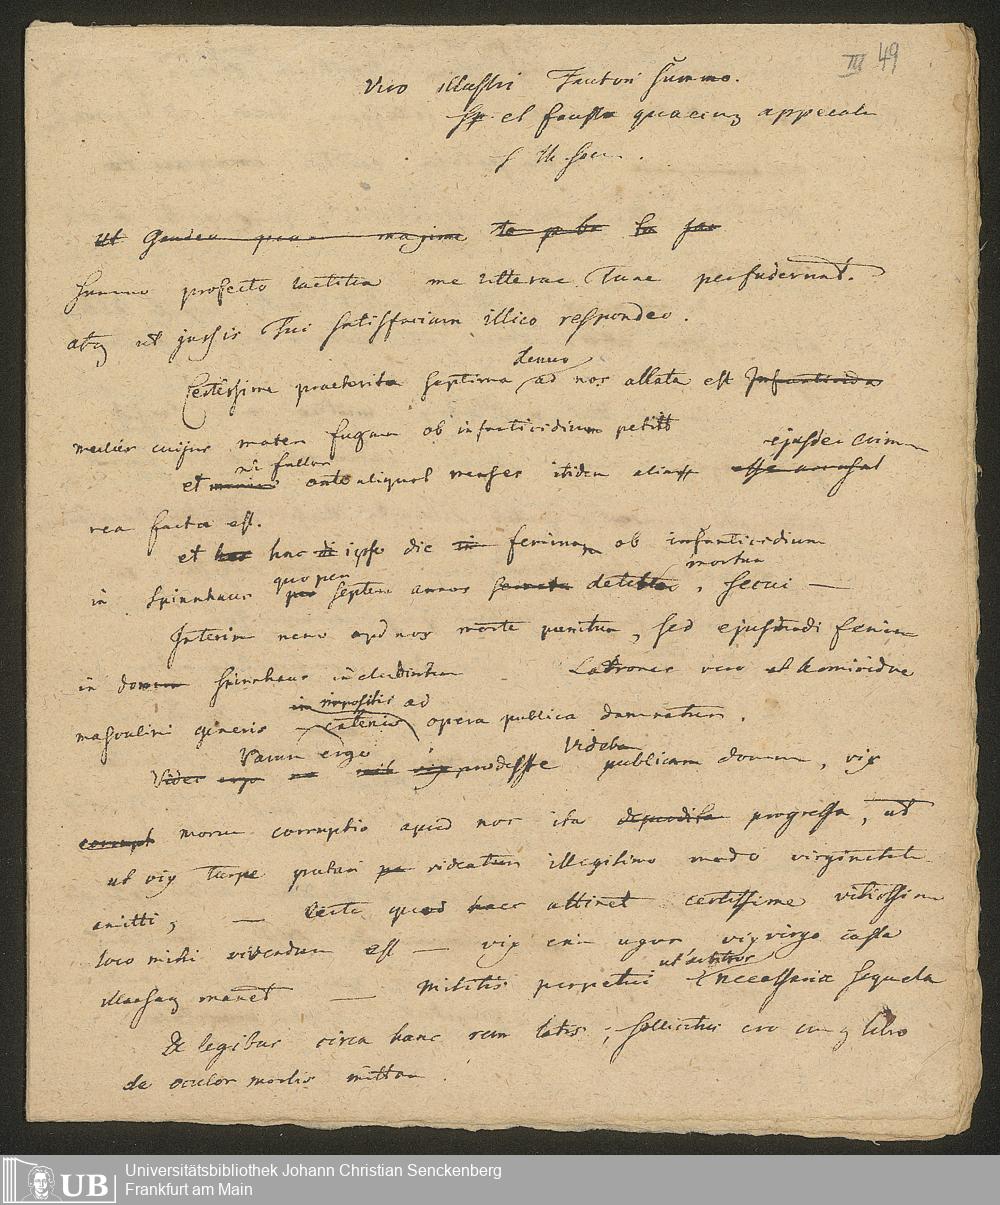 III 49
Viro illustri Fautori summo.
et fausta quaecunq appreca
S Th Soem.
Ut Gaudeo quam maxime
Summo profecto laetitia me litterae Tuae perfuderunt.
atq ut jussis Tui satisfaciam illico respondeo.
denuo
Certissime praeterita septima ad nos allata est Infanticida
mulier cuijus mater fugam ob infanticidium petiit
ni fallor ejusdei crimin
et ante aliquot menses itidem alia esse accusat
rea facta est.
et hac ipso die feminam ob infanticidium
quo per mortua
in Spinnhaus septem annos detenta, secui —
Interim nemo apd nos morte punitur, sed ejusmodi femin
in domum Spinnhaus includuntur Latrones vero et homicidae
impositis ad
masculini generis catenis opera publica damnatur.
Parum ergo Videba
Vides ergo vix prodesse publicam domum, vix
corrupt morum corruptio apud nos ita progressa, ut
ut vix turpe putari videatur illegitimo modo virginitate
amitti; — Certe quod haec attinet certissime vitiosissimo
loco mihi vivendum est — vix enim uxor, vix virgo casta
ut arbitror
illaesaq manet — Militis perpetui necessaria sequela
De legibus circa hanc rem latis, sollicitus ero cum q libro
de oculor morbis mittam.
UB
Universitätsbibliothek Johann Christian Senckenberg
Frankfurt am Main